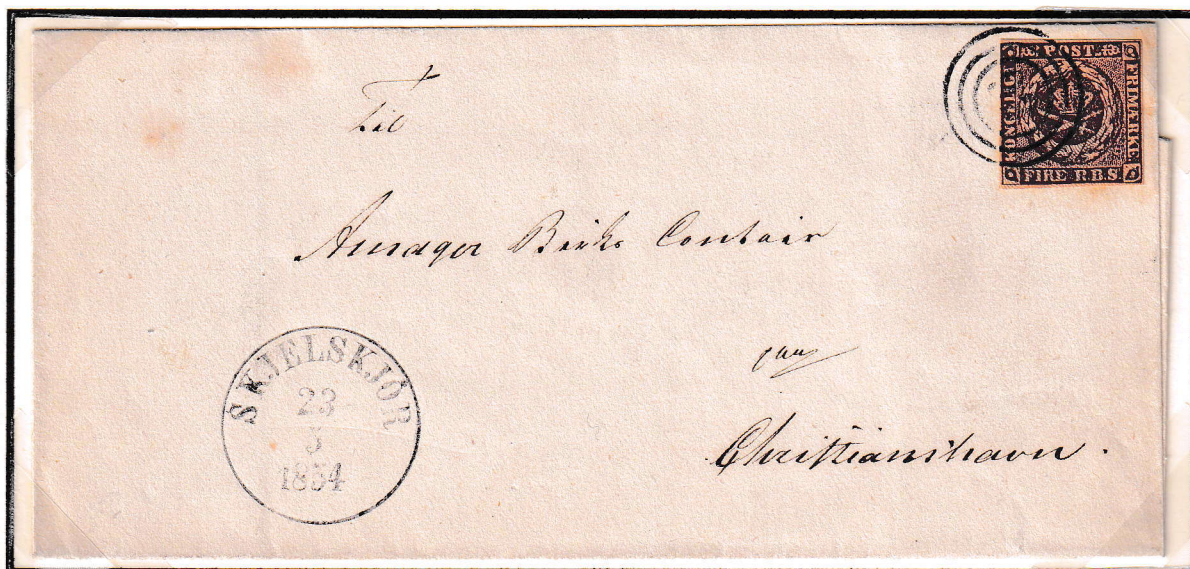 POST
KONGELIGT
FRIMÆRKE
FIRE R.B.S.
Til
Amager Birks Contoir
paa
Christianshavn.
SKJELSKJÖR
23
3
1854